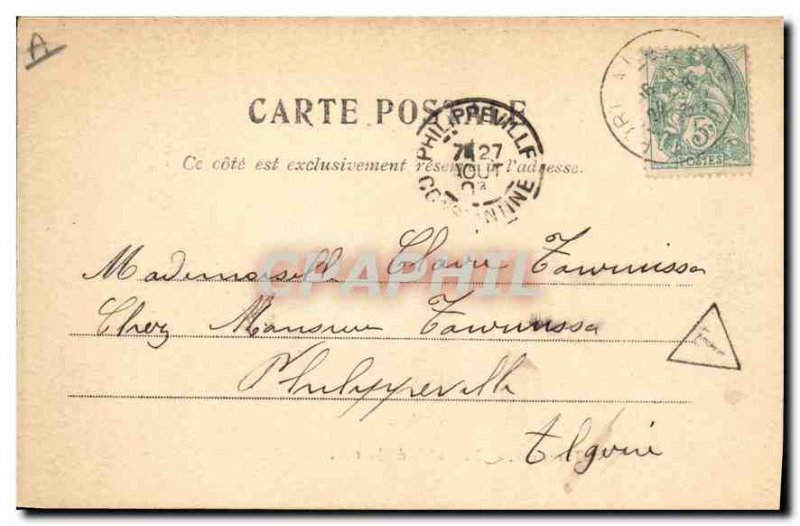 A
CARTE POSTALE
PHILIPPEVILLE
7E 27
AOUT
03
CONSTANTINE
5c
POSTES
Ce côté est exclusivement réservé à l'adresse.
CPAPHIL
Mademoiselle Claire
Chez Monsieur
T
Philippeville
Algérie